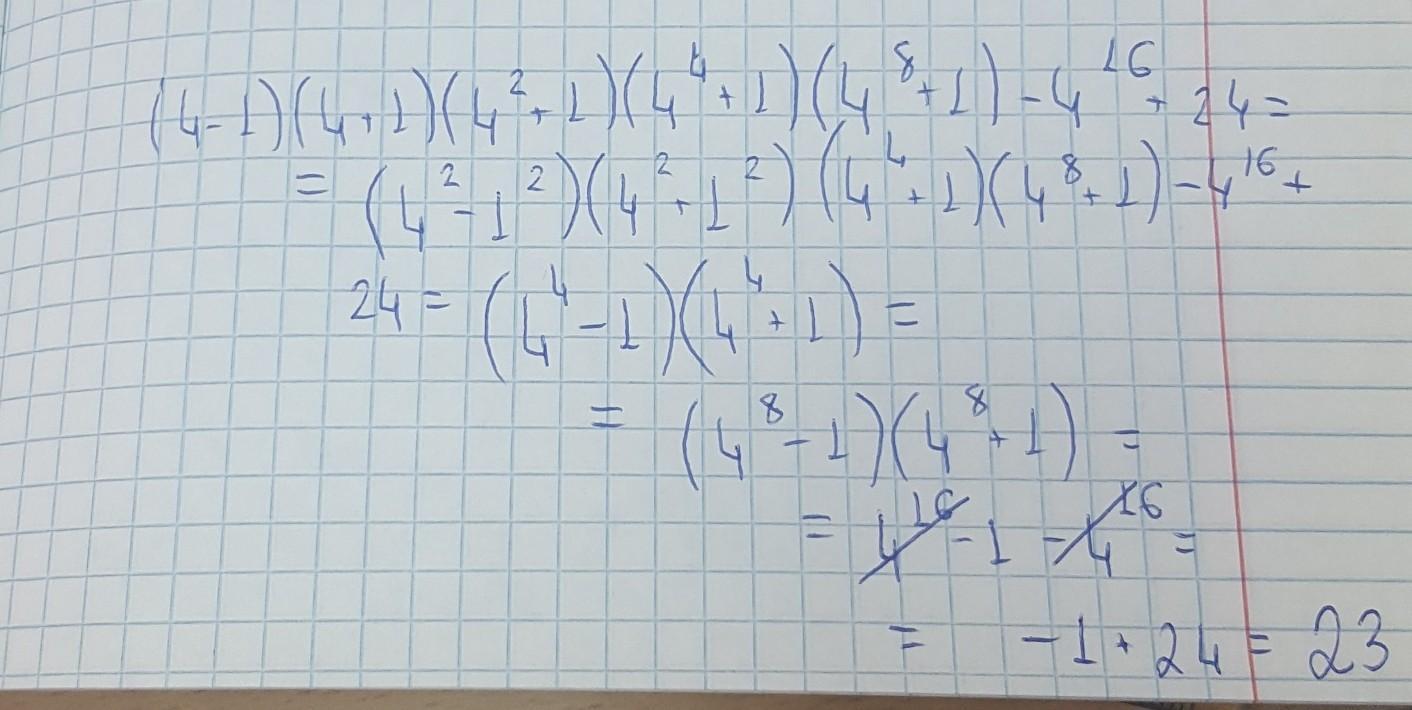 (4-1)(4+1)(4²+1)(4⁴+1)(4⁸+1)-4¹⁶+24=
=(4²-1²)(4²+1²)(4⁴+1)(4⁸+1)-4¹⁶+
24=(4⁴-1)(4⁴+1)=
=(4⁸-1)(4⁸+1)=
=4¹⁶-1-4¹⁶=
=-1+24=23